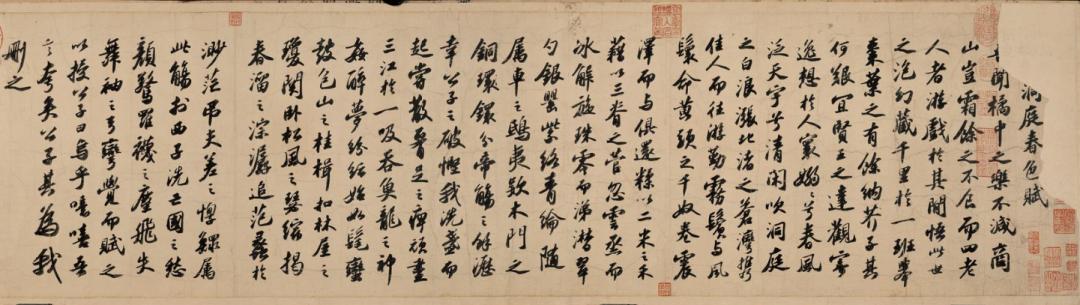 洞庭春色賦
聞橘中之樂不減商
山豈霜餘之不食而四老
人者游戲於其間悟此世
之泡幻藏千里於一班舉
棗葉之有餘納芥子其
何艱宜賢王之達觀寄
逸想於人寰嫋嫋兮春風
泛天宇兮清閑吹洞庭
之白浪漲北渚之蒼灣攜
佳人而往游勤霧鬢與風
鬟命黃頭之千奴卷震
澤而與俱還糅以二米之禾
藉以三脊之菅忽雲蒸而
冰解旋珠零而涕潸翠
勺銀罌紫絡青綸隨
属車之鴟夷款木門之
銅環鐶分帝觴之餘瀝
幸公子之破慳我洗盞而
起嘗散腰足之痺頑盡
三江於一吸吞魚龍之神
姦醉夢紛紜始如髦蠻
鼓包山之桂楫扣林屋之
瓊關臥松風之瑟縮揭
春溜之淙潺追范蠡於
渺茫弔夫差之惸鰥属
此觴於西子洗亡國之愁
顏驚羅襪之塵飛失
舞袖之弓彎覺而賦之
以授公子曰烏乎噫嘻吾
言夸矣公子其為我
刪之